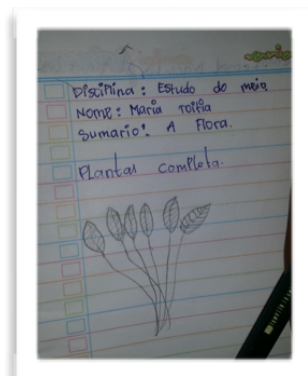 Disciplina: Estudo do meio
Nome: Maria
Sumario: A Flora.
Plantas completa.